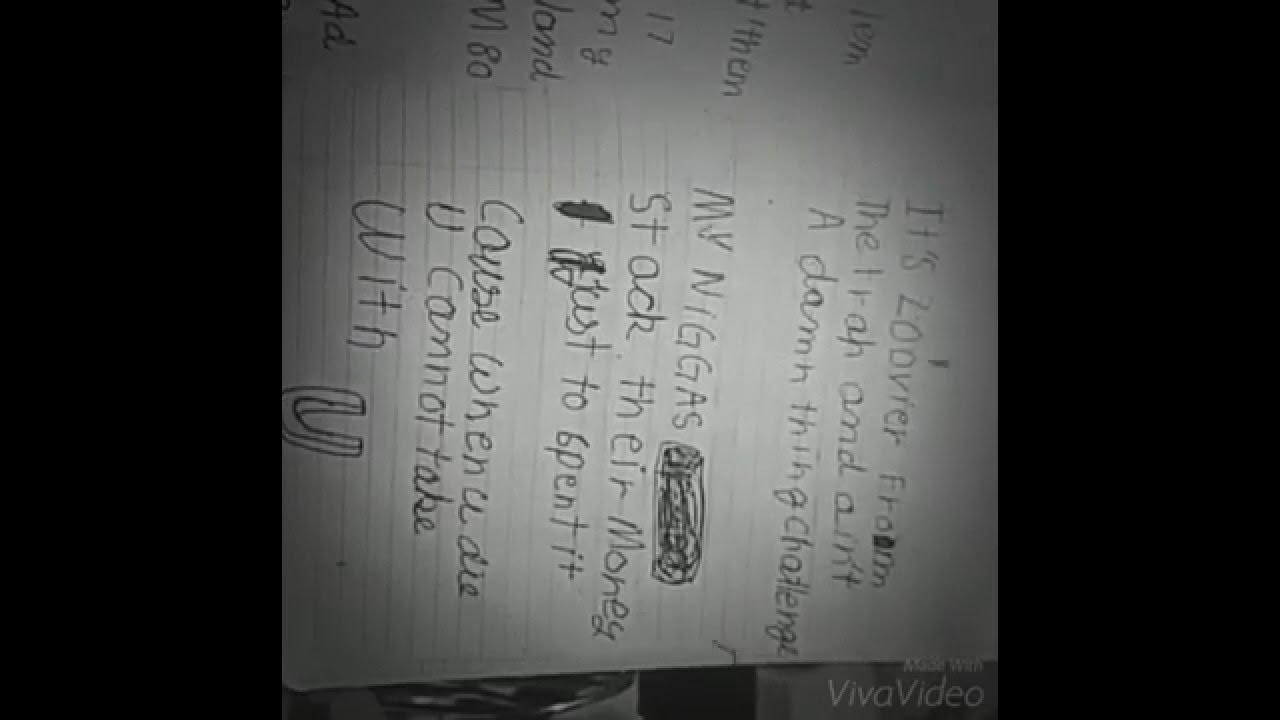 lem
t
t/them
17
my
land
M80
Ad
It's Zoovier From
The trap and ain't
A damn thing challenge
My NIGGAS
Stack their Money
Just to spent it
Couse when u die
U Cannot take
With
U
Made With
VivaVideo